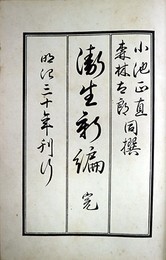 小池正直
森林太郎同撰
衞生新編 完
明治三十年刊行